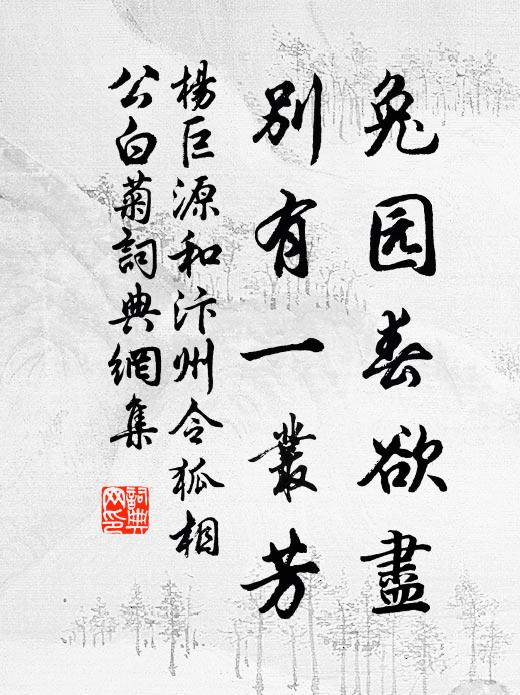 兔园春欲盡
別有一叢芳
楊巨源和汴州令狐相
公白菊詞典網集
詞典
网印